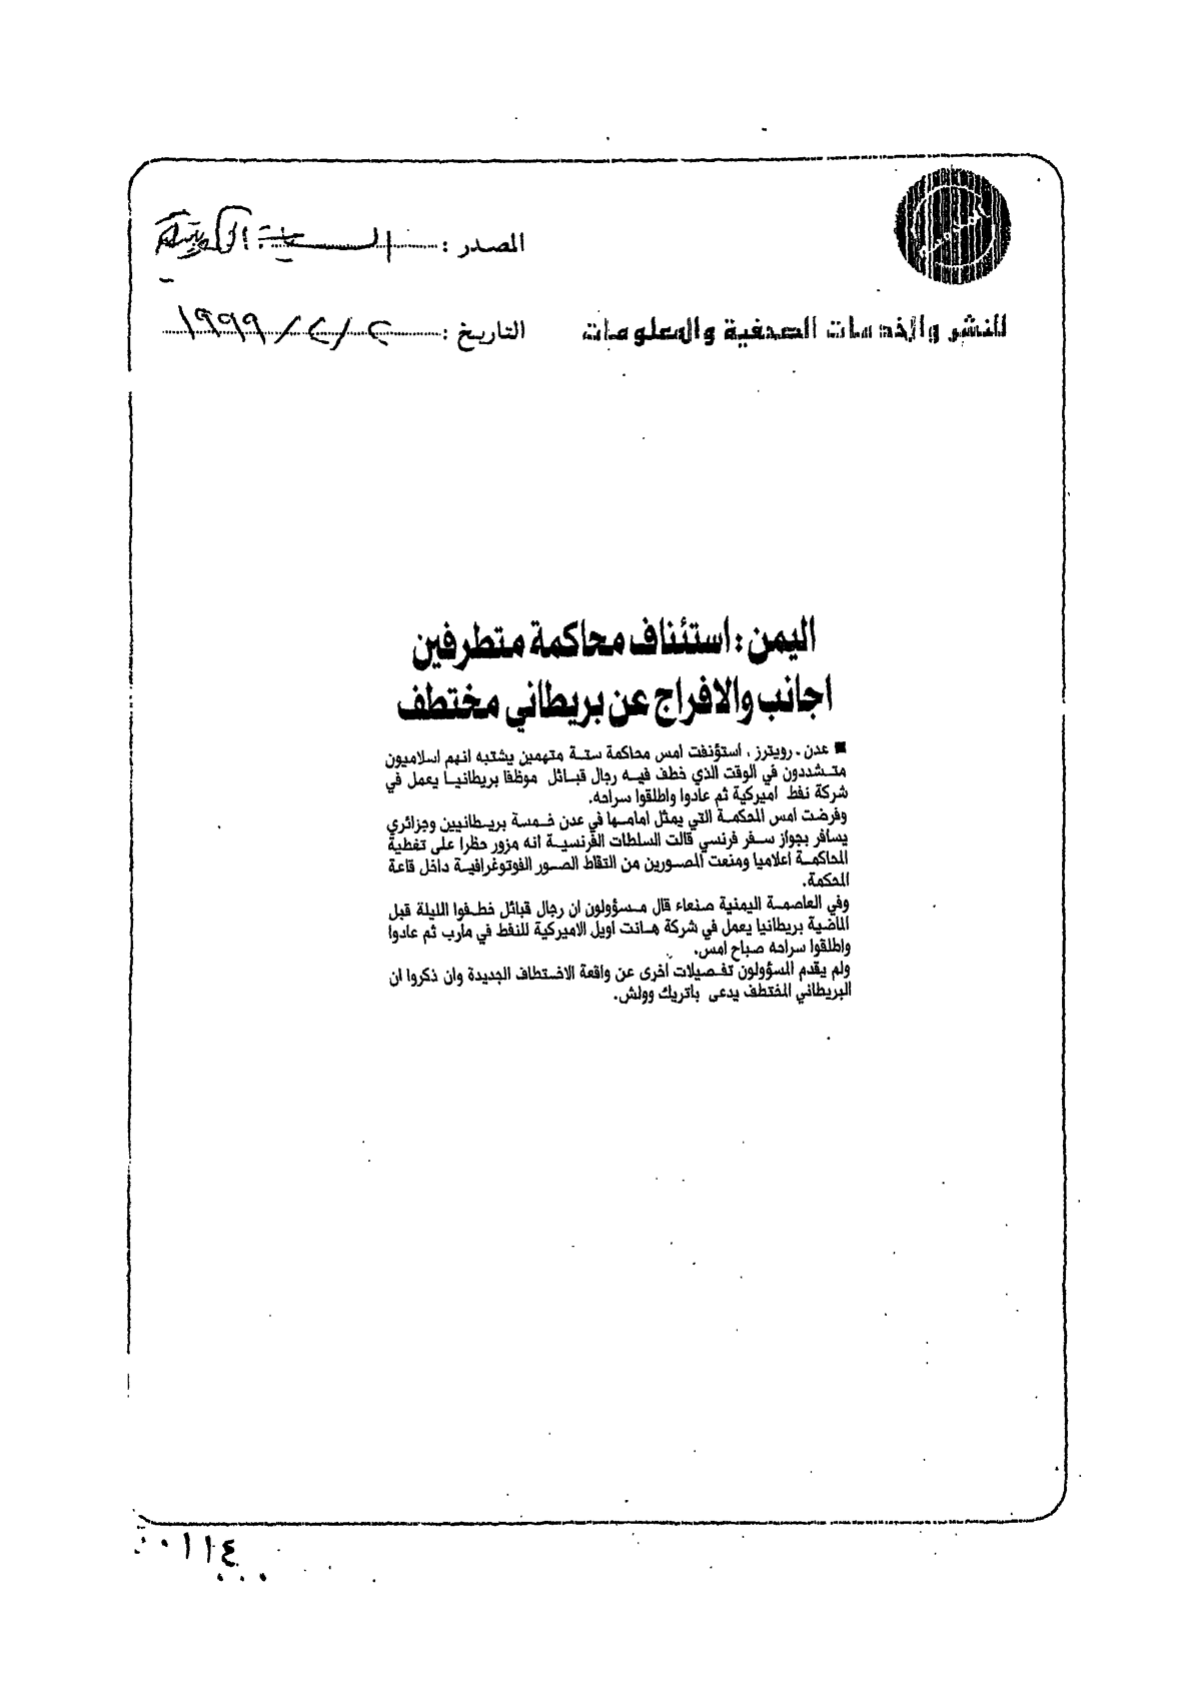 المصدر : السياسة الكويتية
للنشر والخدمات الصحفية والمعلومات
التاريخ : ٢ / ٢ / ١٩٩٩
اليمن : استئناف محاكمة متطرفين
اجانب والافراج عن بريطاني مختطف
■ عدن ـ رويترز ، استؤنفت امس محاكمة ستة متهمين يشتبه انهم اسلاميون
متشددون في الوقت الذي خطف فيه رجال قبائل موظفا بريطانيا يعمل في
شركة نفط اميركية ثم عادوا واطلقوا سراحه.
وفرضت امس المحكمة التي يمثل امامها في عدن خمسة بريطانيين وجزائري
يسافر بجواز سفر فرنسي قالت السلطات الفرنسية انه مزور حظرا على تغطية
المحاكمة اعلاميا ومنعت المصورين من التقاط الصور الفوتوغرافية داخل قاعة
المحكمة.
وفي العاصمة اليمنية صنعاء قال مسؤولون ان رجال قبائل خطفوا الليلة قبل
الماضية بريطانيا يعمل في شركة هانت اويل الاميركية للنفط في مارب ثم عادوا
واطلقوا سراحه صباح امس.
ولم يقدم المسؤولون تفصيلات أخرى عن واقعة الاختطاف الجديدة وان ذكروا ان
البريطاني المختطف يدعى باتريك وولش.
٠١١٤